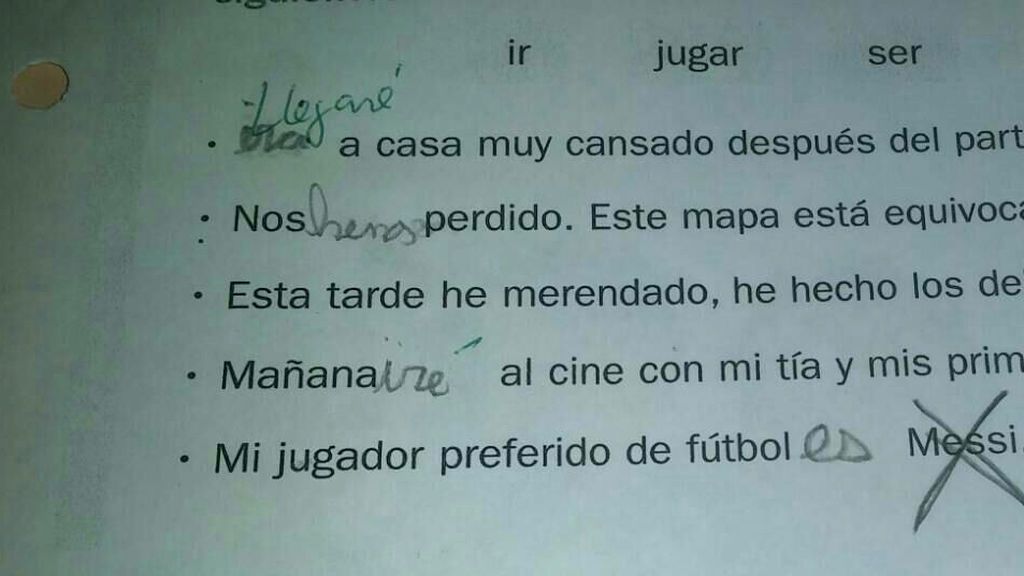 ir jugar ser
Llegaré
a casa muy cansado después del part
Nos hemos perdido. Este mapa está equivoca
Esta tarde he merendado, he hecho los de
Mañana iré al cine con mi tía y mis prim
Mi jugador preferido de fútbol es Messi.